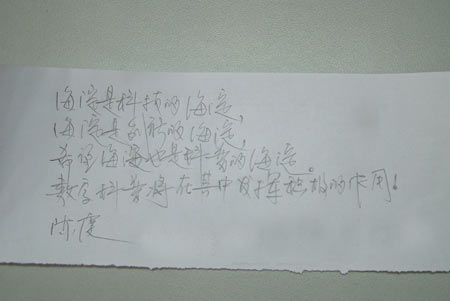 海淀是科技的海淀,
海淀是创新的海淀,
希望海淀也是科普的海淀。
数字科普将在其中发挥积极的作用!
陈